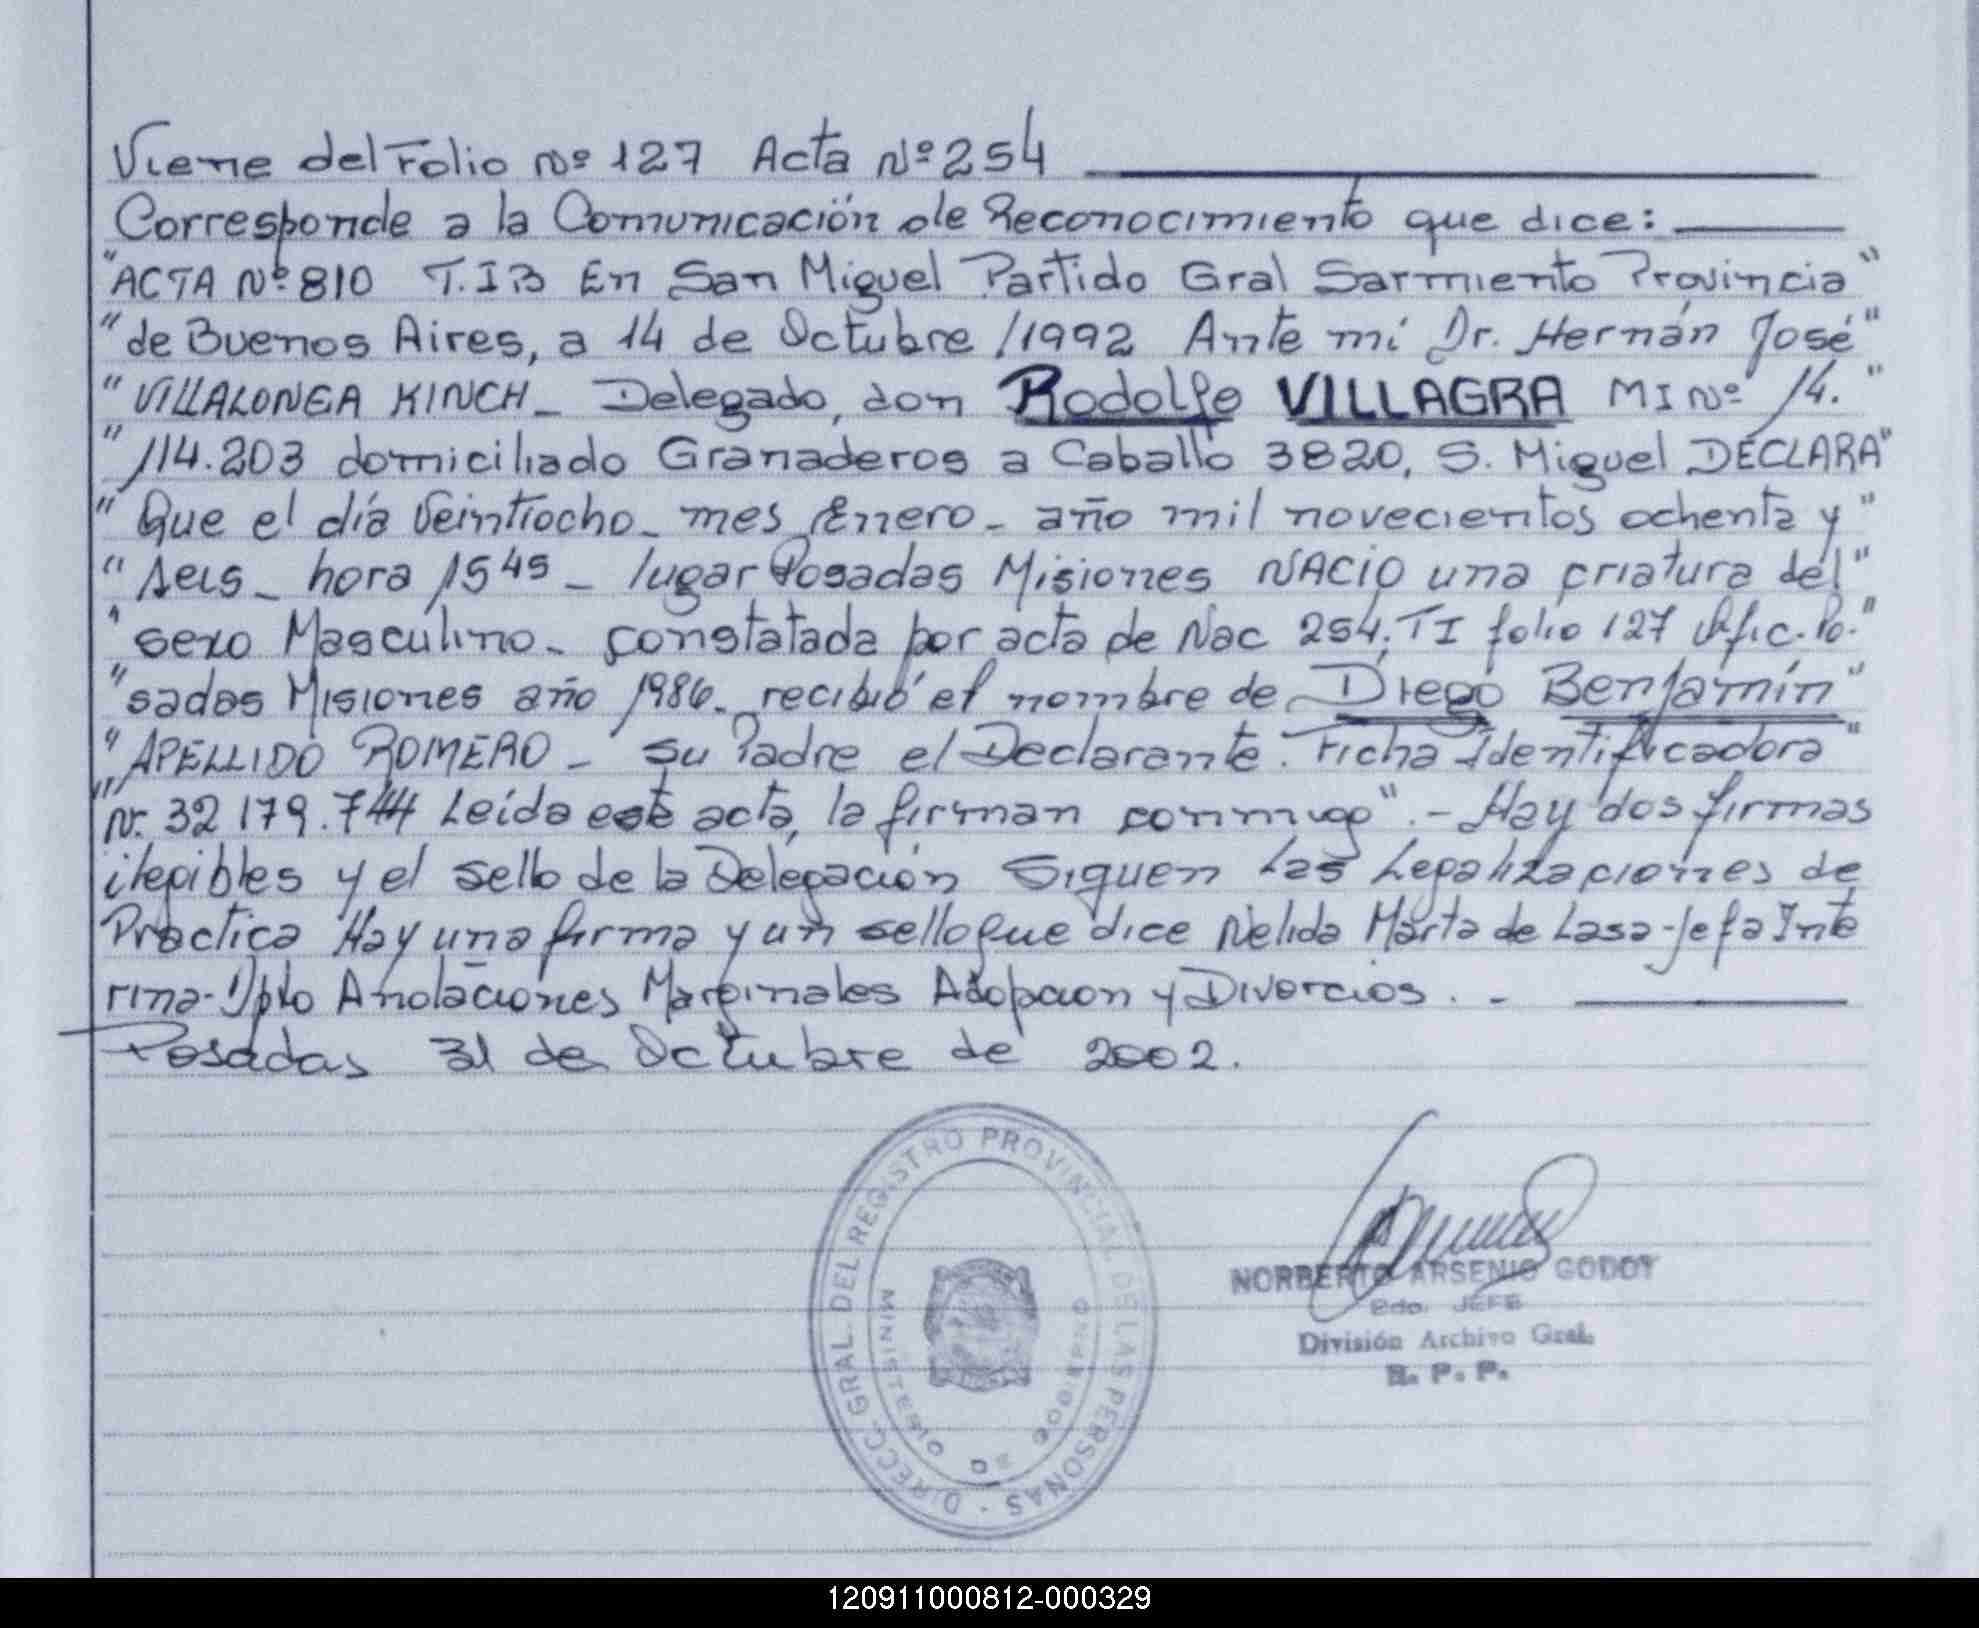 Viene del Folio Nº 127 Acta Nº 254
Corresponde a la Comunicación de Reconocimiento que dice:
"ACTA Nº 810 T.I B En San Miguel Partido Gral Sarmiento Provincia"
"de Buenos Aires, a 14 de Octubre /1992 Ante mí Dr. Hernán José"
"VILLALONGA KINCH_ Delegado, don Rodolfo VILLAGRA MI Nº 14."
"114.203 domiciliado Granaderos a Caballo 3820, S. Miguel DECLARA"
"Que el día Veintiocho_ mes Enero_ año mil novecientos ochenta y"
"Seis_ hora 15 45_ lugar Posadas Misiones NACIO una criatura del"
"sexo Masculino_ constatada por acta de Nac 254, TI folio 127 Ofic. Po-"
"sadas Misiones año 1986_ recibió el nombre de Diego Benjamín"
"APELLIDO ROMERO_ su Padre el Declarante. Ficha Identificadora"
"Nr. 32 179.744 Leída este acta, la firman conmigo".- Hay dos firmas
ilegibles y el sello de la Delegación Siguen Las Legalizaciones de
Practica Hay una firma y un sello que dice Nelida Marta de Lasa-Jefa Inte
rina-Dpto Anotaciones Marginales Adopcion y Divorcios. -
Posadas 31 de Octubre de 2002.
DIRECC. GRAL. DEL REGISTRO PROVINCIAL DE LAS PERSONAS -
MINISTERIO DE GOBIERNO
NORBERTO ARSENIO GODOY
2do. JEFE
División Archivo Gral.
R. P. P.
120911000812-000329